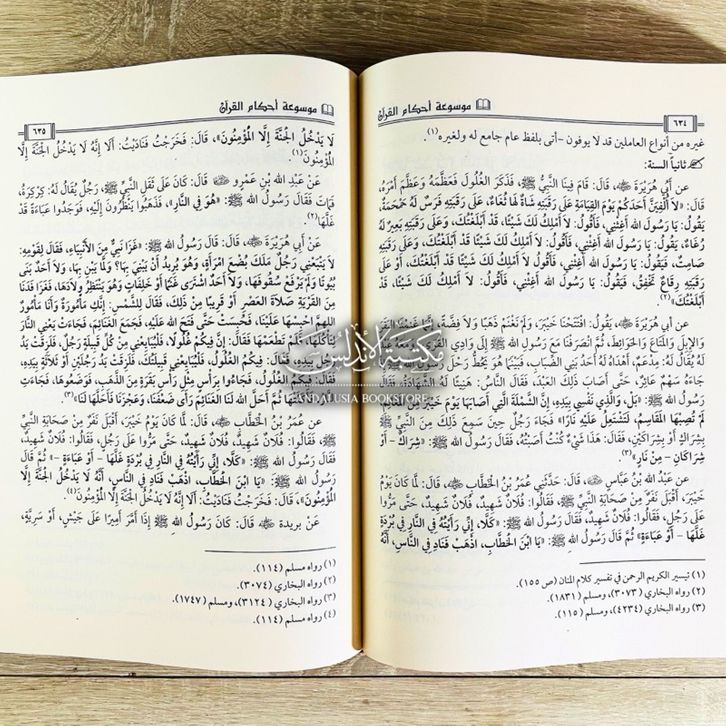 ٦٣٤
موسوعة أحكام القرآن
غيره من أنواع العاملين قد لا يوفون -أتى بلفظ عام جامع له ولغيره(١).
ثانياً السنة:
عن أَبي هُرَيْرَةَ ﷺ، قَالَ: قَامَ فِينَا النَّبِيُّ ﷺ، فَذَكَرَ الغُلُولَ فَعَظَّمَهُ وَعَظَّمَ أَمْرَهُ،
قَالَ: «لاَ أُلْفِيَنَّ أَحَدَكُمْ يَوْمَ القِيَامَةِ عَلَى رَقَبَتِهِ شَاةٌ لَهَا ثُغَاءٌ، عَلَى رَقَبَتِهِ فَرَسٌ لَهُ حَمْحَمَةٌ،
يَقُولُ: يَا رَسُولَ اللهِ أَغِثْنِي، فَأَقُولُ: لاَ أَمْلِكُ لَكَ شَيْئًا، قَدْ أَبْلَغْتُكَ، وَعَلَى رَقَبَتِهِ بَعِيرٌ لَهُ
رُغَاءٌ، يَقُولُ: يَا رَسُولَ اللهِ أَغِثْنِي، فَأَقُولُ: لاَ أَمْلِكُ لَكَ شَيْئًا قَدْ أَبْلَغْتُكَ، وَعَلَى رَقَبَتِهِ
صَامِتٌ، فَيَقُولُ: يَا رَسُولَ اللهِ أَغِثْنِي، فَأَقُولُ لاَ أَمْلِكُ لَكَ شَيْئًا قَدْ أَبْلَغْتُكَ، أَوْ عَلَى
رَقَبَتِهِ رِقَاعٌ تَخْفِقُ، فَيَقُولُ: يَا رَسُولَ اللهِ أَغِثْنِي، فَأَقُولُ: لاَ أَمْلِكُ لَكَ شَيْئًا، قَدْ
أَبْلَغْتُكَ»(٢)
عن أبي هُرَيْرَةَ، يَقُولُ: افْتَتَحْنَا خَيْبَرَ، وَلَمْ نَغْنَمْ ذَهَبًا وَلاَ فِضَّةً، إِنَّمَا غَنِمْنَا البَقَرَ
وَالإِبِلَ وَالمَتَاعَ وَالحَوَائِطَ، ثُمَّ انْصَرَفْنَا مَعَ رَسُولِ اللهِ ﷺ إِلَى وَادِي القُرَى، وَمَعَهُ عَبْدٌ
لَهُ يُقَالُ لَهُ: مِدْعَمٌ، أَهْدَاهُ لَهُ أَحَدُ بَنِي الضِّبَابِ، فَبَيْنَمَا هُوَ يَحُطُّ رَحْلَ رَسُولِ اللهِ
جَاءَهُ سَهْمٌ عَائِرٌ، حَتَّى أَصَابَ ذَلِكَ العَبْدَ، فَقَالَ النَّاسُ: هَنِيئًا لَهُ الشَّهَادَةُ، فَقَالَ
رَسُولُ اللهِ ﷺ: «بَلْ، وَالَّذِي نَفْسِي بِيَدِهِ، إِنَّ الشَّمْلَةَ الَّتِي أَصَابَهَا يَوْمَ خَيْبَرَ مِنَ المَغَانِمِ،
لَمْ تُصِبْهَا المَقَاسِمُ، لَتَشْتَعِلُ عَلَيْهِ نَارًا» فَجَاءَ رَجُلٌ حِينَ سَمِعَ ذَلِكَ مِنَ النَّبِيِّ ﷺ
بِشِرَاكٍ أَوْ بِشِرَاكَيْنِ، فَقَالَ: هَذَا شَيْءٌ كُنْتُ أَصَبْتُهُ، فَقَالَ رَسُولُ اللهِ ﷺ: «شِرَاكٌ - أَوْ
شِرَاكَانِ - مِنْ نَارٍ»(٣).
عن عَبْدُ اللهِ بْنُ عَبَّاسٍ، قَالَ: حَدَّثَنِي عُمَرُ بْنُ الْخَطَّابِ، قَالَ: لَمَّا كَانَ يَوْمُ
خَيْبَرَ، أَقْبَلَ نَفَرٌ مِنْ صَحَابَةِ النَّبِيِّ ﷺ، فَقَالُوا: فُلَانٌ شَهِيدٌ، فُلَانٌ شَهِيدٌ، حَتَّى مَرُّوا
عَلَى رَجُلٍ، فَقَالُوا: فُلَانٌ شَهِيدٌ، فَقَالَ رَسُولُ اللهِ ﷺ: «كَلَّا، إِنِّي رَأَيْتُهُ فِي النَّارِ فِي بُرْدَةٍ
غَلَّهَا - أَوْ عَبَاءَةٍ» ثُمَّ قَالَ رَسُولُ اللهِ ﷺ: «يَا ابْنَ الْخَطَّابِ، اذْهَبْ فَنَادِ فِي النَّاسِ، أَنَّهُ
(١) تيسير الكريم الرحمن في تفسير كلام المنان (ص ١٥٥).
(٢) رواه البخاري (٣٠٧٣)، ومسلم (١٨٣١).
(٣) رواه البخاري (٤٢٣٤)، ومسلم (١١٥).
موسوعة أحكام القرآن
٦٣٥
لَا يَدْخُلُ الْجَنَّةَ إِلَّا الْمُؤْمِنُونَ»، قَالَ: فَخَرَجْتُ فَنَادَيْتُ: أَلَا إِنَّهُ لَا يَدْخُلُ الْجَنَّةَ إِلَّا
الْمُؤْمِنُونَ(١)
عَنْ عَبْدِ اللهِ بْنِ عَمْرٍو، قَالَ: كَانَ عَلَى ثَقَلِ النَّبِيِّ ﷺ، رَجُلٌ يُقَالُ لَهُ: كِرْكِرَةُ،
فَمَاتَ فَقَالَ رَسُولُ اللهِ ﷺ: «هُوَ فِي النَّارِ»، فَذَهَبُوا يَنْظُرُونَ إِلَيْهِ، فَوَجَدُوا عَبَاءَةً قَدْ
غَلَّهَا(٢).
عَنْ أَبِي هُرَيْرَةَ، قَالَ: قَالَ رَسُولُ اللهِ ﷺ: «غَزَا نَبِيٌّ مِنَ الأَنْبِيَاءِ، فَقَالَ لِقَوْمِهِ:
لاَ يَتْبَعْنِي رَجُلٌ مَلَكَ بُضْعَ امْرَأَةٍ، وَهُوَ يُرِيدُ أَنْ يَبْنِيَ بِهَا؟ وَلَمَّا يَبْنِ بِهَا، وَلاَ أَحَدٌ بَنَى
بُيُوتًا وَلَمْ يَرْفَعْ سُقُوفَهَا، وَلاَ أَحَدٌ اشْتَرَى غَنَمًا أَوْ خَلِفَاتٍ وَهُوَ يَنْتَظِرُ وِلاَدَهَا، فَغَزَا فَدَنَا
مِنَ القَرْيَةِ صَلاَةَ العَصْرِ أَوْ قَرِيبًا مِنْ ذَلِكَ، فَقَالَ لِلشَّمْسِ: إِنَّكِ مَأْمُورَةٌ وَأَنَا مَأْمُورٌ
اللهم احْبِسْهَا عَلَيْنَا، فَحُبِسَتْ حَتَّى فَتَحَ اللهُ عَلَيْهِ، فَجَمَعَ الغَنَائِمَ، فَجَاءَتْ يَعْنِي النَّارَ
لِتَأْكُلَهَا، فَلَمْ تَطْعَمْهَا فَقَالَ: إِنَّ فِيكُمْ غُلُولًا، فَلْيُبَايِعْنِي مِنْ كُلِّ قَبِيلَةٍ رَجُلٌ، فَلَزِقَتْ يَدُ
رَجُلٍ بِيَدِهِ، فَقَالَ: فِيكُمُ الغُلُولُ، فَلْيُبَايِعْنِي قَبِيلَتُكَ، فَلَزِقَتْ يَدُ رَجُلَيْنِ أَوْ ثَلاَثَةٍ بِيَدِهِ،
فَقَالَ: فِيكُمُ الغُلُولُ، فَجَاءُوا بِرَأْسٍ مِثْلِ رَأْسِ بَقَرَةٍ مِنَ الذَّهَبِ، فَوَضَعُوهَا، فَجَاءَتِ
النَّارُ، فَأَكَلَتْهَا ثُمَّ أَحَلَّ اللهُ لَنَا الغَنَائِمَ رَأَى ضَعْفَنَا، وَعَجْزَنَا فَأَحَلَّهَا لَنَا»(٣)
عن عُمَرُ بْنُ الْخَطَّابِ، قَالَ: لَمَّا كَانَ يَوْمُ خَيْبَرَ، أَقْبَلَ نَفَرٌ مِنْ صَحَابَةِ النَّبِيِّ
ﷺ، فَقَالُوا: فُلَانٌ شَهِيدٌ، فُلَانٌ شَهِيدٌ، حَتَّى مَرُّوا عَلَى رَجُلٍ، فَقَالُوا: فُلَانٌ شَهِيدٌ،
فَقَالَ رَسُولُ اللهِ ﷺ: «كَلَّا، إِنِّي رَأَيْتُهُ فِي النَّارِ فِي بُرْدَةٍ غَلَّهَا - أَوْ عَبَاءَةٍ -» ثُمَّ قَالَ
رَسُولُ اللهِ ﷺ: «يَا ابْنَ الْخَطَّابِ، اذْهَبْ فَنَادِ فِي النَّاسِ، أَنَّهُ لَا يَدْخُلُ الْجَنَّةَ إِلَّا
الْمُؤْمِنُونَ»، قَالَ: فَخَرَجْتُ فَنَادَيْتُ: أَلَا إِنَّهُ لَا يَدْخُلُ الْجَنَّةَ إِلَّا الْمُؤْمِنُونَ(٤)
عَنْ بريدة، قَالَ: كَانَ رَسُولُ اللهِ ﷺ إِذَا أَمَّرَ أَمِيرًا عَلَى جَيْشٍ، أَوْ سَرِيَّةٍ،
(١) رواه مسلم (١١٤).
(٢) رواه البخاري (٣٠٧٤).
(٣) رواه البخاري (٣١٢٤)، ومسلم (١٧٤٧).
(٤) رواه مسلم (١١٤).
مكتبة الأندلس
ANDALUSIA BOOKSTORE